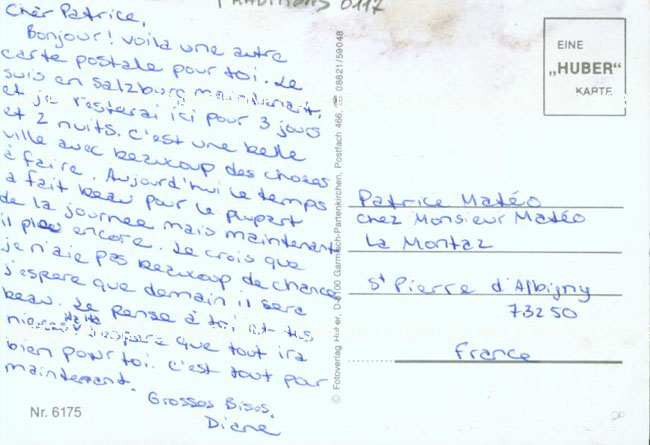 TRADITIONS 0117
Chèr Patrice,
Bonjour! Voila une autre
carte postale pour toi. Je
suis en Salzburg maintenant,
et je resterai ici pour 3 jours
et 2 nuits. C'est une belle
ville avec beaucoup des choses
à faire. Aujourd'hui le temps
a fait beau pour le plupart
de la journee mais maintenant
il pleu encore. Je crois que
je n'aie pas beaucoup de chance
j'espere que demain il sera
beau. Je pense à toi et tes
j'espere que tout ira
bien pour toi. C'est tout pour
maintenant.
Grosses Bises,
Diane
Nr. 6175
© Fotoverlag Huber, D-8100 Garmisch-Partenkirchen, Postfach 466, 08821/59048
EINE
„HUBER"
KARTE
Patrice Matéo
chez Monsieur Matéo
La Montaz
St Pierre d'Albigny
73250
France